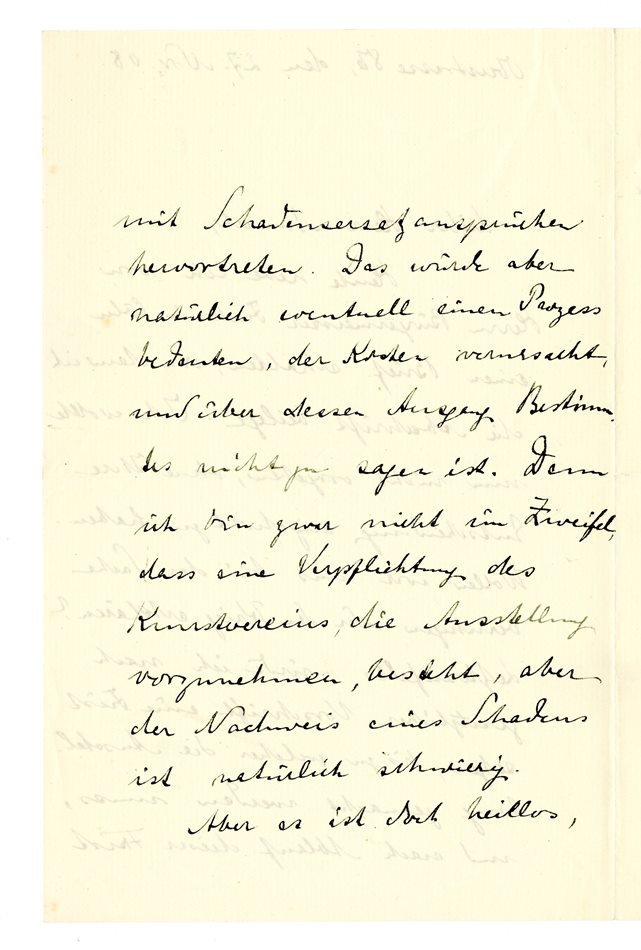 mit Schadensersatzansprüchen
hervortreten. Das würde aber
natürlich eventuell einen Prozess
bedeuten, der Kosten verursacht,
und über dessen Ausgang Bestimm-
tes nicht zu sagen ist. Denn
ich bin zwar nicht im Zweifel,
dass eine Verpflichtung des
Kunstvereins, die Ausstellung
vorzunehmen, besteht, aber
der Nachweis eines Schadens
ist natürlich schwierig.
Aber es ist doch heillos,